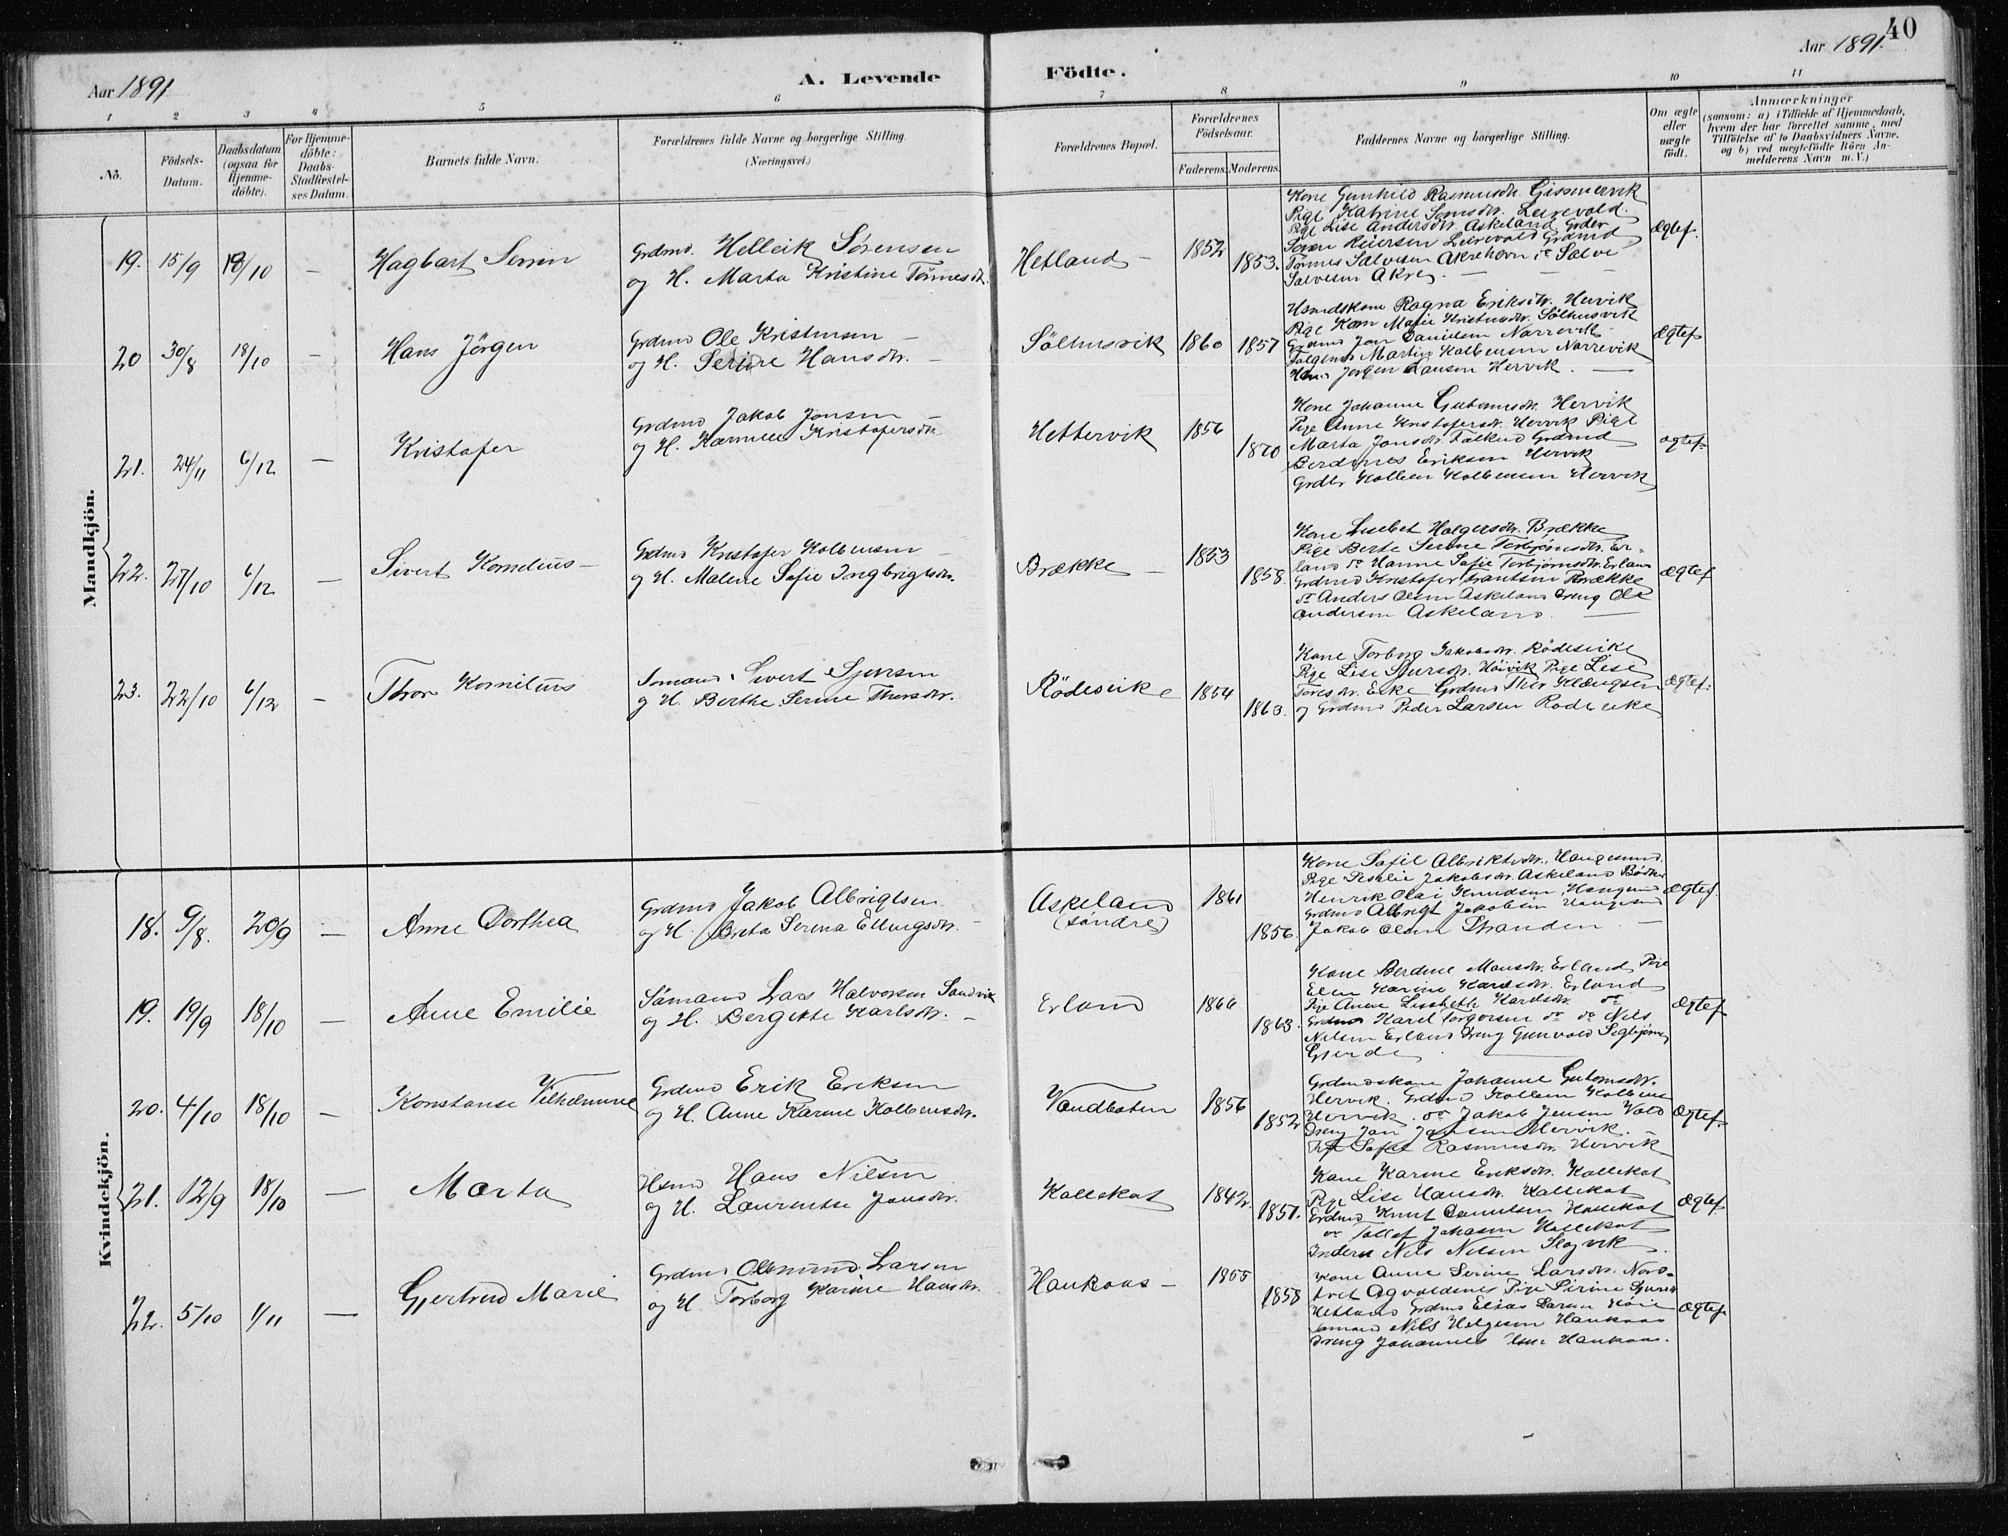 40
Aar 1891
A. Levende Födte.
Aar 1891.
1 2 3 4 5 6 7 8 9 10 11
No.
Födsels-Datum.
Daabsdatum (ogsaa for Hjemme-döbte).
For Hjemme-döbte: Daabs-Stadfæstel-ses Datum.
Barnets fulde Navn.
Forældrenes fulde Navne og borgerlige Stilling. (Næringsvei.)
Forældrenes Bopæl.
Forældrenes Födselsaar.
Faderens. Moderens.
Faddernes Navne og borgerlige Stilling.
Om ægte eller uægte födt.
Anmærkninger
(saasom: a) i Tilfælde af Hjemmedaab,
hvem der har forrettet samme, med
Tilföielse af to Daabsvidners Navne.
og b) ved uægtefödte Börn An-
melderens Navn m. V.)
Mandkjön.
19. 15/9 18/10 — Hagbart Sørrin
Grdmd. Helleik Sörensen
og H. Marta Kristine Tönnesdtr.
Hetland — 1852 1853.
Kone Gunhild Rasmusdtr. Gismervik
Pige Katrine Sørnsdtr. Leirvold.
Pige Lise Andersdtr. Askeland Grdbr
Søren Reiersen Leirvold Grdmd
Tönnes Salvesen Akrehavn do Salve
Salvesen Akre. —
Ægtef.
20 30/8 18/10 — Hans Jörgen
Grdmd Ole Kristensen —
og H. Serine Hansdtr. —
Sölhusvik 1860 1857
Hsmdskone Ragna Eriksdtr. Hervik
Pige Karn Marie Kristensdtr. Sölhusvik
Grdmd Jon Danielsen Narrevik
Følgemd Martin Kolbensen Narrevik
Jörgen Larsen Hervik. —
Ægtef
21. 24/11 6/12 — Kristofer
Grdmd Jakob Jonsen —
og H. Karine Kristofersdtr
Hettervik 1856 1860
Kone Johanne Gutormsdtr. Hervik
Pige Anne Kristofersdtr. Hervik Pige
Marta Jonsdtr. Falkeid Grdmd
Berdines Eriksen Hervik
Grdbr Kolbein Kolbensen Hervik
ægtef.
22. 27/10 6/12 — Sivert Kornelius —
Grdmd Kristofer Kolbensen —
og H. Malene Sofie Ingbrigtsdtr.
Brække — 1853 1858.
Kone Lisebet Holgersdtr. Brække
Pige Berte Serine Torbjörnsdtr. Er-
land do Hanne Sofie Torbjörnsdtr. Erland
Grdmd Kristofer Brække
do Anders Olsen Askeland Dreng Ole
Andersen Askeland. —
ægtef
23. 22/10 6/12 — Thor Kornelius
Sømand Sivert Sjursen
og H. Berthe Serine Thorsdtr.
Rödesvike 1854 1863.
Kone Torborg Jakobsdtr. Rödesvike
Pige Lise Sjursdtr. Höivik Pige Lise
Toresdtr. Eike Grdmd Thor Klængsen
og Grdmd Peder Larsen Rödesvike
ægtef.
Kvindekjön.
18. 9/8. 20/9 — Anne Dorthea
Grdmd Jakob Albrigtsen
og H. Brita Serena Ellingsdtr. —
Askeland (söndre) 1861 1856.
Kone Sofie Albriktsdtr. Haugesund.
Pige Jakobsdtr. Askeland Bödker
Henrik Olai Knudsen Haugesund
Grdmd Albrigt Jakobsen Haugesund
Jakob Olsen Stranden —
Ægtef.
19. 19/9 18/10 — Anne Emilie
Sömand Lars Halvorsen Sandvik
og H. Bergitte Karlsdtr. —
Erland 1866 1863.
Kone Berdine Monsdtr. Erland Pige
Elen Karine Karlsdtr. Erland
Pige Anne Lisebeth Karlsdtr. do
Grdmd Karl Torgersen do do Nils
Nilsen Erland Dreng Gunvald
Gjerde —
Ægtef
20. 4/10 18/10 — Konstanse Vilhelmine
Grdmd Erik Eriksen
og H. Anne Karine Kolbensdtr.
Vandbaten 1856 1852
Grdmdskone Johanne Gutormsdtr.
Hervik. Grdmd Kolbein Kolbensen
Hervik. do Jakob Jensen Vold
Dreng Jon Jonsen Hervik. —
Pige Sofie Rasmusdtr. Hervik
Ægtef.
21. 12/9 18/10 — Marta
Hsmd Hans Nilsen
og H. Laurentse Jonsdtr.
Kallekot 1842. 1851.
Kone Karine Eriksdtr. Kallekot
Pige Lise Hansdtr. Kallekot
Grdmd Knut Danielsen Kallekot
do Tollef Johasen Kallekot
Inderst Nils Nilsen Slogvik.
Ægtef
22. 5/10 1/11 — Gjertrud Marie
Grdmd Osmund Larsen
og H. Torborg Karine Hansdtr.
Haukaas — 1855 1858
Kone Anne Serine Larsdtr. Nord-
tvet Agvaldenes Pige Sirine Sjursdtr
Hetland Grdmd Elias Larsen Höie
Sømand Nils Helgesen Haukaas
Dreng Johannes Haukaas.
Ægtef